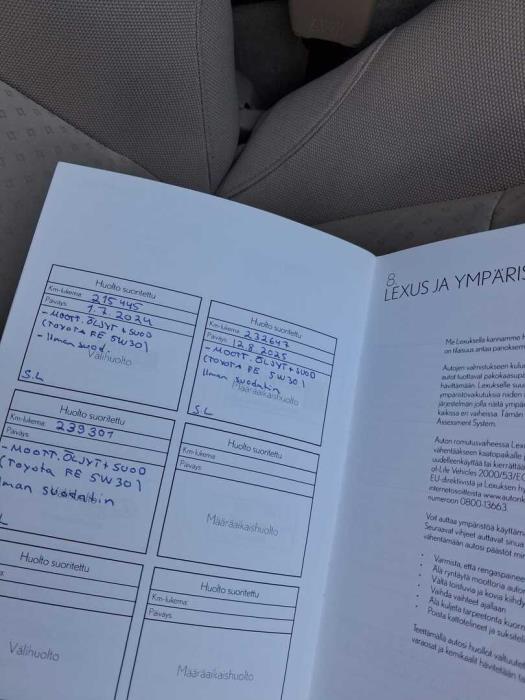 Huolto suoritettu
Km-lukema: 215445
Päiväys: 1.7.2024
- MOOTT. ÖLJYT + SUOD
(TOYOTA FE 5W30)
- Ilman suod.
Välihuolto
S.L
Huolto suoritettu
Km-lukema: 232647
Päiväys: 12.8.2025
- MOOTT. ÖLJYT + SUOD
(TOYOTA FE 5W30)
Ilman suodatin
Määräaikaishuolto
S.L
Huolto suoritettu
Km-lukema: 239301
Päiväys:
- MOOTT. ÖLJYT + SUOD
(TOYOTA FE 5W30)
Ilman suodatin
Huolto suoritettu
Km-lukema:
Päiväys:
Määräaikaishuolto
Huolto suoritettu
Välihuolto
Huolto suoritettu
Km-lukema:
Päiväys:
Määräaikaishuolto
8.
LEXUS JA YMPÄRIS
Me Lexuksella kannamme
on tilaisuus antaa panoksem
Autojen valmistukseen kulu
autot tuottavat pakokaasupä
hävittämään. Lexukselle suu
ympäristövaikutuksia niiden
järjestelmän jolla näitä ympär
kaikissa eri vaiheissa. Tämän
Assessment System.
Auton romutusvaiheessa Lexu
vähentääkseen kaatopaikalle
uudelleenkäyttää tai kierrättää
of-Life Vehicles 2000/53/EC
EU-direktiivistä ja Lexuksen hy
internetosoitteista www.autonk
numeroon 0800-13663.
Voit auttaa ympäristöä käyttäm
Seuraavat vihjeet auttavat sinua
vähentämään autosi päästöt min
• Varmista, että rengaspaine
• Älä ryntäytä moottoria
• Vältä toistuvia ja kovia kiihdy
• Vaihda vaihteet ajallaan
• Älä kuljeta tarpeetonta kuorm
• Poista kattotelineet ja suksitel
Teettämällä autosi huollot valtuutet
varaosat ja kemikaalit hävitetään